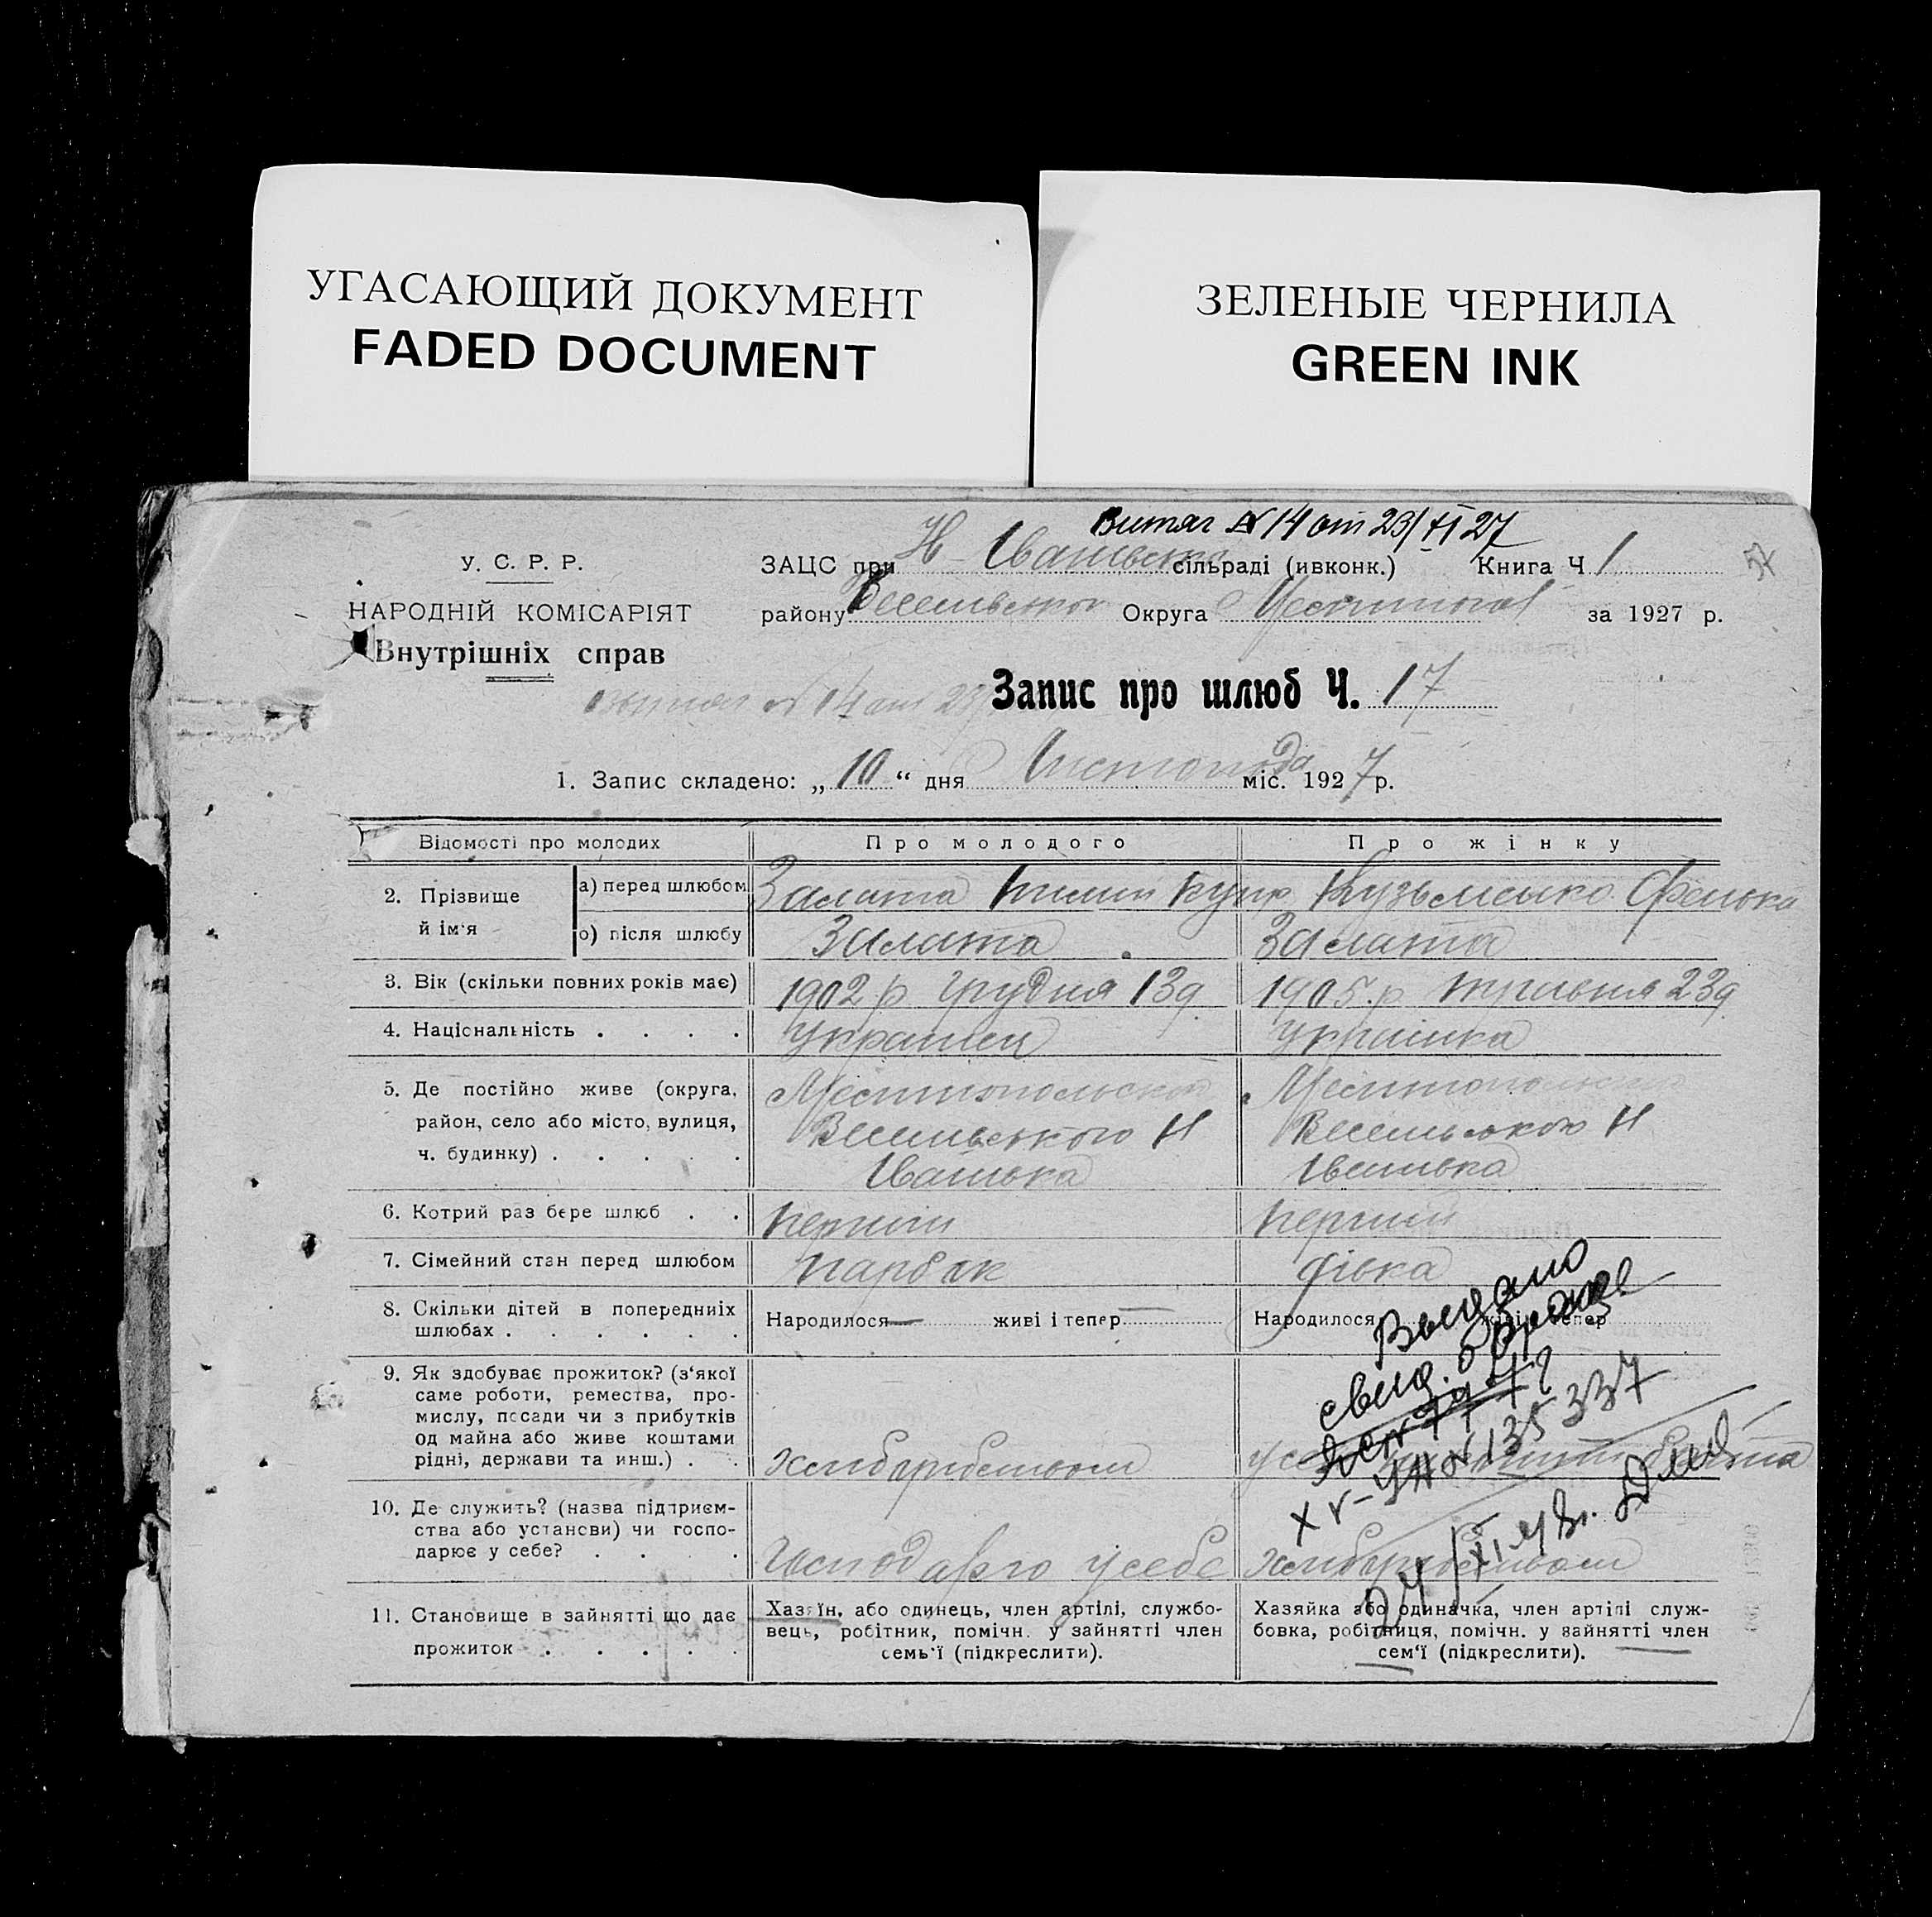 УГАСАЮЩИЙ ДОКУМЕНТ
FADED DOCUMENT
ЗЕЛЕНЫЕ ЧЕРНИЛА
GREEN INK
Витяг № 14 от 23/XI 27
У. С. Р. Р.
НАРОДНІЙ КОМІСАРІЯТ
Внутрішніх справ
ЗАЦС при Н Іванівськ сільраді (ивконк.) Книга Ч 1
району Веселівського Округа за 1927 р.
Запис про шлюб Ч. 17
1. Запис складено: „ 10 “ дня Листопада міс. 1927 р.
Відомості про молодих
Про молодого
Про жінку
2. Прізвище й ім'я
а) перед шлюбом
Залата Купр Кузьменко Фенька
о) після шлюбу
Залата Залата
3. Вік (скільки повних років має)
1902 р Грудня 13д 1905 р травня 23д
4. Національність . . . .
Українец Українка
5. Де постійно живе (округа,
район, село або місто, вулиця,
ч. будинку) . . . . .
Мелітопольской
Веселівського Н
Іванівка
Веселівського Н
Іванівка
6. Котрий раз бере шлюб . .
перший перший
7. Сімейний стан перед шлюбом
парбок дівка
8. Скільки дітей в попередниіх
шлюбах . . . . . .
Народилося — живі і тепер —
Народилося живі і тепер
Выдано
свид. о браке
XV-УН № 135337
9. Як здобуває прожиток? (з'якої
саме роботи, ремества, про-
мислу, посади чи з прибутків
од майна або живе коштами
рідні, держави та инш.) . .
хлібробством
10. Де служить? (назва підприєм-
ства або установи) чи госпо-
дарює у себе? . . . .
Господарю у себе хлібробством
11. Становище в зайнятті що дає
прожиток . . . . .
Хазяїн, або одинець, член артілі, службо-
вець, робітник, помічн. у зайнятті член
семь'ї (підкреслити).
Хазяйка або одиначка, член артілі служ-
бовка, робітниця, помічн. у зайнятті член
сем'ї (підкреслити).